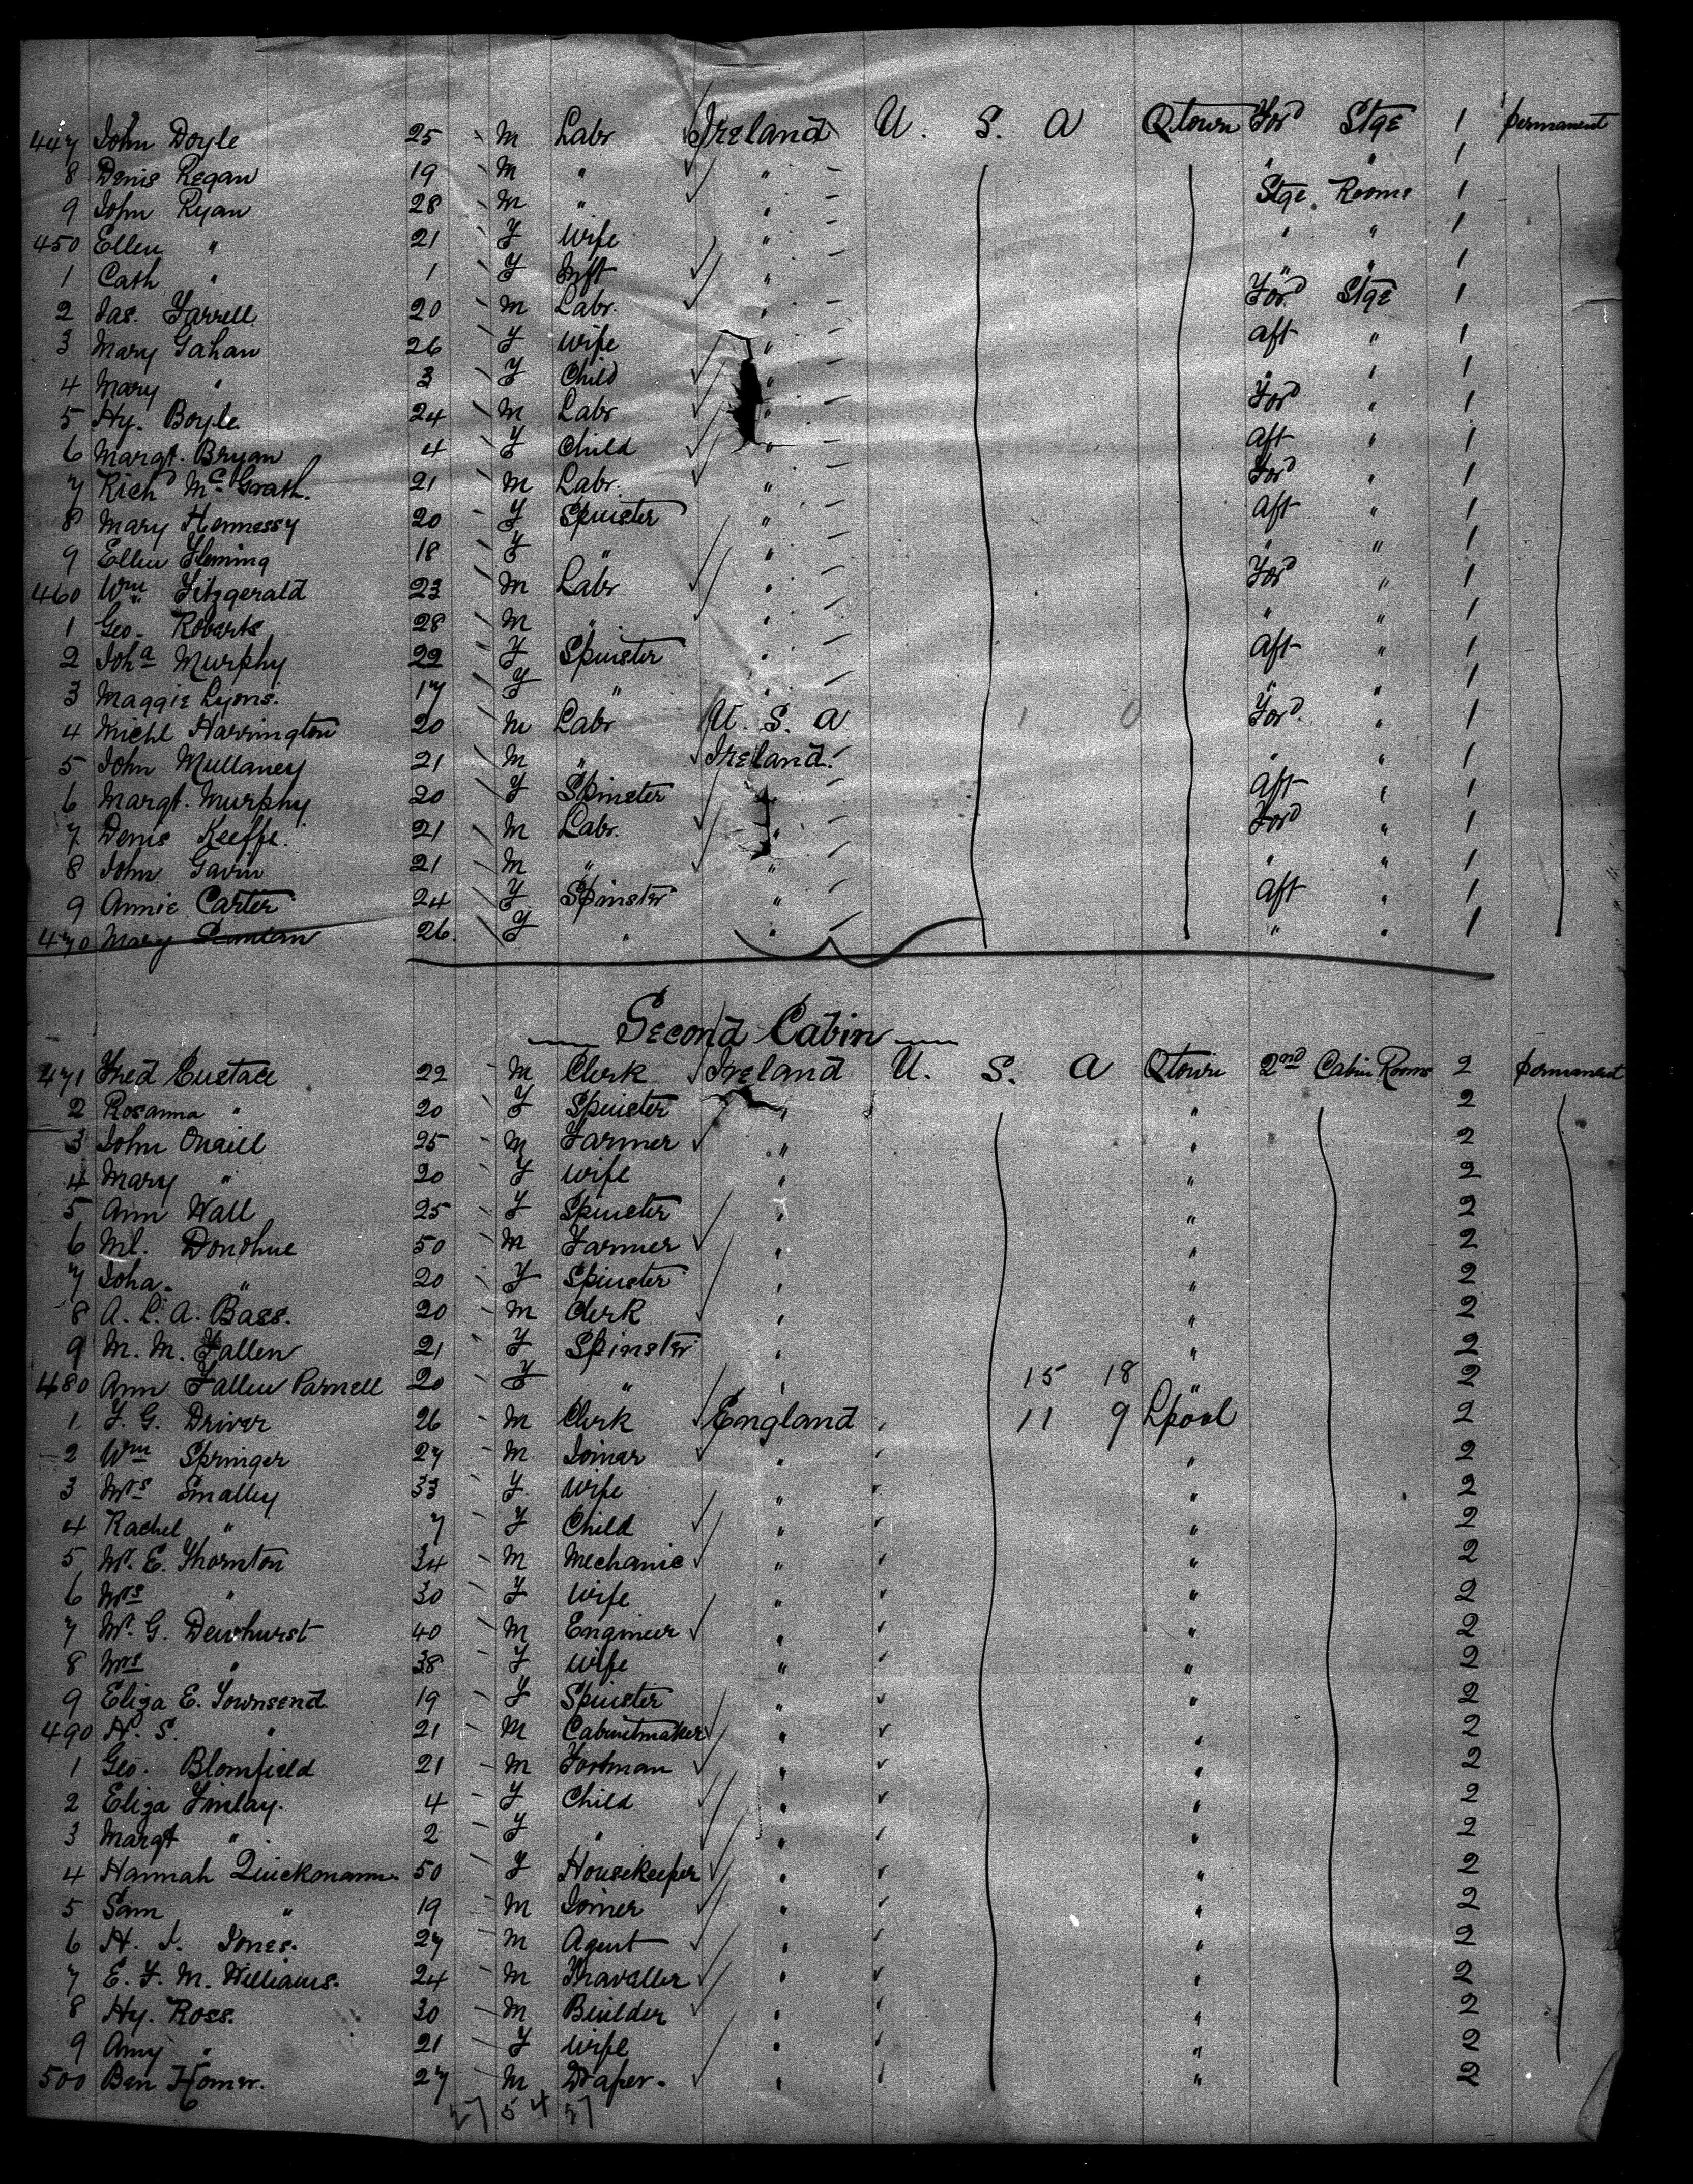 447 John Doyle 25 M Labr Ireland U. S. A Qtown For'd Stge 1 permanent
8 Denis Regan 19 M " " " " 1
9 John Ryan 28 M " " Stge Rooms 1
450 Ellen " 21 F Wife " " " 1
1 Cath " 1 F Inft " " " 1
2 Jas. Farrell 20 M Labr. " For'd Stge 1
3 Mary Gahan 26 F Wife " Aft " 1
4 Mary " 3 F Child " " " 1
5 Hy. Boyle 24 M Labr " For'd " 1
6 Margt. Bryan 4 F Child " Aft " 1
7 Rich'd McGrath. 21 M Labr. " For'd " 1
8 Mary Hennessy 20 F Spinster " Aft " 1
9 Ellen Fleming 18 F " " " " 1
460 Wm Fitzgerald 23 M Labr " For'd " 1
1 Geo. Roberts 28 M " " " " 1
2 Joha Murphy 22 F Spinster " Aft " 1
3 Maggie Lyons. 17 F " " " " 1
4 Michl Harrington 20 M Labr U. S. A 1 0 For'd. " 1
5 John Mullaney 21 M " Ireland. " " 1
6 Margt. Murphy 20 F Spinster " Aft " 1
7 Denis Keeffe. 21 M Labr. " For'd " 1
8 John Gavin 21 M " " " " 1
9 Annie Carter 24 F Spinster " Aft " 1
470 Mary 26. F " " " " 1
Second Cabin
471 Fred Eustace 22 M Clerk Ireland U. S. A Qtown 2nd Cabin Rooms 2 permanent
2 Rosanna " 20 F Spinster " " 2
3 John Oneill 25 M Farmer " " 2
4 Mary " 20 F Wife " " 2
5 Ann Wall 25 F Spinster " " 2
6 Ml. Donohue 50 M Farmer " " 2
7 Joha. " 20 F Spinster " " 2
8 A. L. A. Bass. 20 M Clerk " " 2
9 M. M. Fallen 21 F Spinster " " 2
480 Ann Fallen Parnell 20 F " " 15 18 " 2
1 F. G. Driver 26 M Clerk England " 11 9 Lpool 2
2 Wm Springer 27 M Joiner " " " 2
3 Mrs Smalley 33 F Wife " " " 2
4 Rachel " 7 F Child " " " 2
5 W. E. Thornton 34 M Mechanic " " " 2
6 Mrs " 30 F Wife " " " 2
7 W. G. Dewhurst 40 M Engineer " " " 2
8 Mrs " 38 F Wife " " " 2
9 Eliza E. Townsend 19 F Spinster " " " 2
490 H. S. " 21 M Cabinetmaker " " " 2
1 Geo. Blomfield 21 M Footman " " " 2
2 Eliza Finlay. 4 F Child " " " 2
3 Margt " 2 F " " " " 2
4 Hannah Quickmann 50 F Housekeeper " " " 2
5 Sam " 19 M Joiner " " " 2
6 H. J. Jones. 27 M Agent " " " 2
7 E. F. M. Williams. 24 M Traveller " " " 2
8 Hy. Ross. 30 M Builder " " " 2
9 Amy " 21 F Wife " " " 2
500 Ben Homer. 27 M Draper. " " " 2
27 54 27